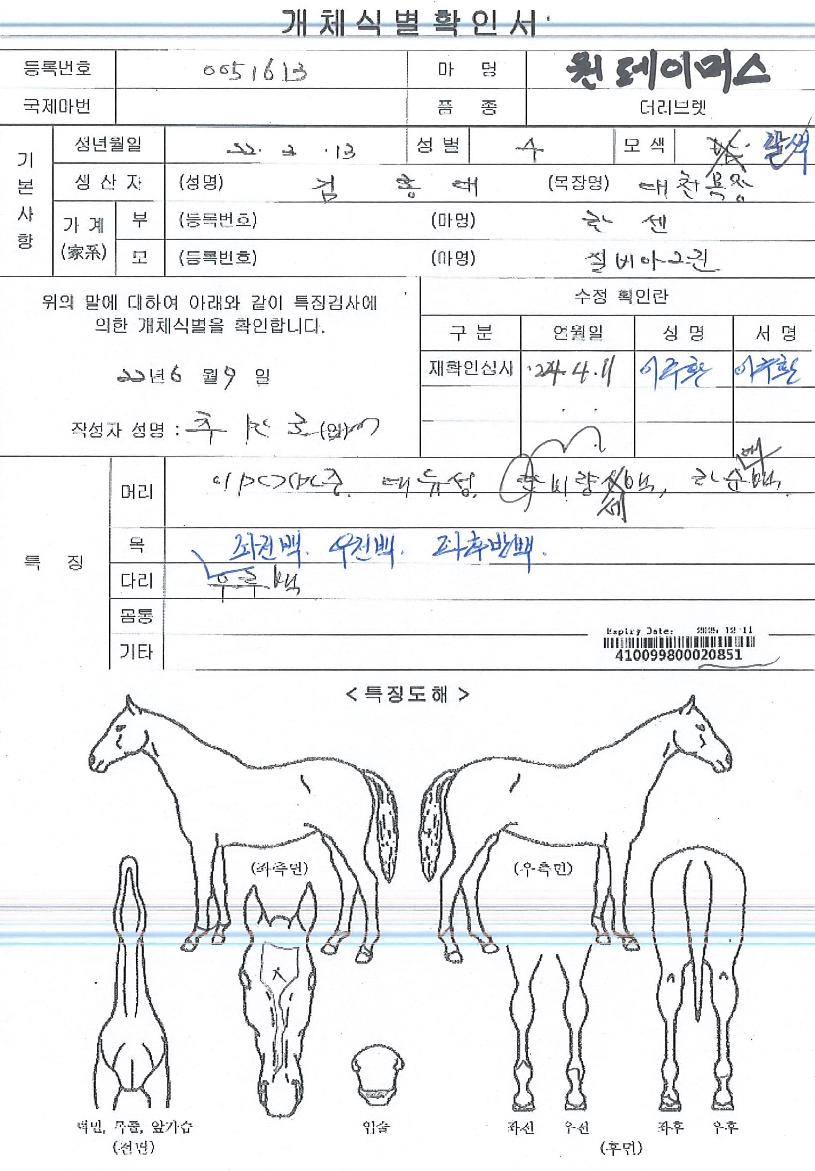 개체식별확인서
등록번호 0051613 마 명 원데이머스
국제마번 품 종 더러브렛
기본사항
성년월일 22. 2 .13 성별 수 모색 갈색
생산자 (성명) 김 홍 대 (목장명) 대천목장
가계(家系) 부 (등록번호) (마명) 한센
모 (등록번호) (마명) 질비아2퀸
위의 말에 대하여 아래와 같이 특징검사에
의한 개체식별을 확인합니다.
22년 6 월 9 일
작성자 성명 : (인)
수정 확인란
구분 연월일 성명 서명
재확인심사 '24.4.11 이주환 이주환
특 징
머리 대유성, 비량 세백, 하순백.
목
좌전백. 우전백. 좌후반백.
다리 우후백
몸통
기타
Expiry Date: 2025 12 11
410099800020851
<특징도해>
(좌측면) (우측면)
턱밑, 목줄, 앞가슴
(전면)
입술
좌전 우전 좌후 우후
(후면)